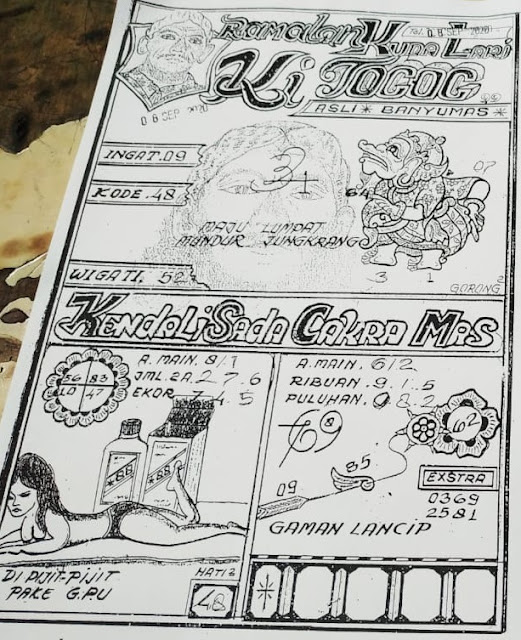 RAMALAN KUDA LARI
Tgl. 08 SEP 2020
Ki TOGOG
ASLI * BANYUMAS *
08 SEP 2020
INGAT.09
KODE.48
WIGATI. 52
31
64
07
MAJU LUMPAT
MUNDUR JUNGKRANG
3 1
GORONG 2
KENDALI SADA CAKRA MAS
56 83
10 47
A. MAIN. 8/1
JML. 2A. 2 7. 6
EKOR 7 4. 5
*88
*88
DI PIJIT-PIJIT
PAKE G.PU
HATI2
48
A. MAIN. 6/2
RIBUAN. 9. 1. 5
PULUHAN. 9 8. 2
62
85
09
GAMAN LANCIP
EXSTRA
0369
2581